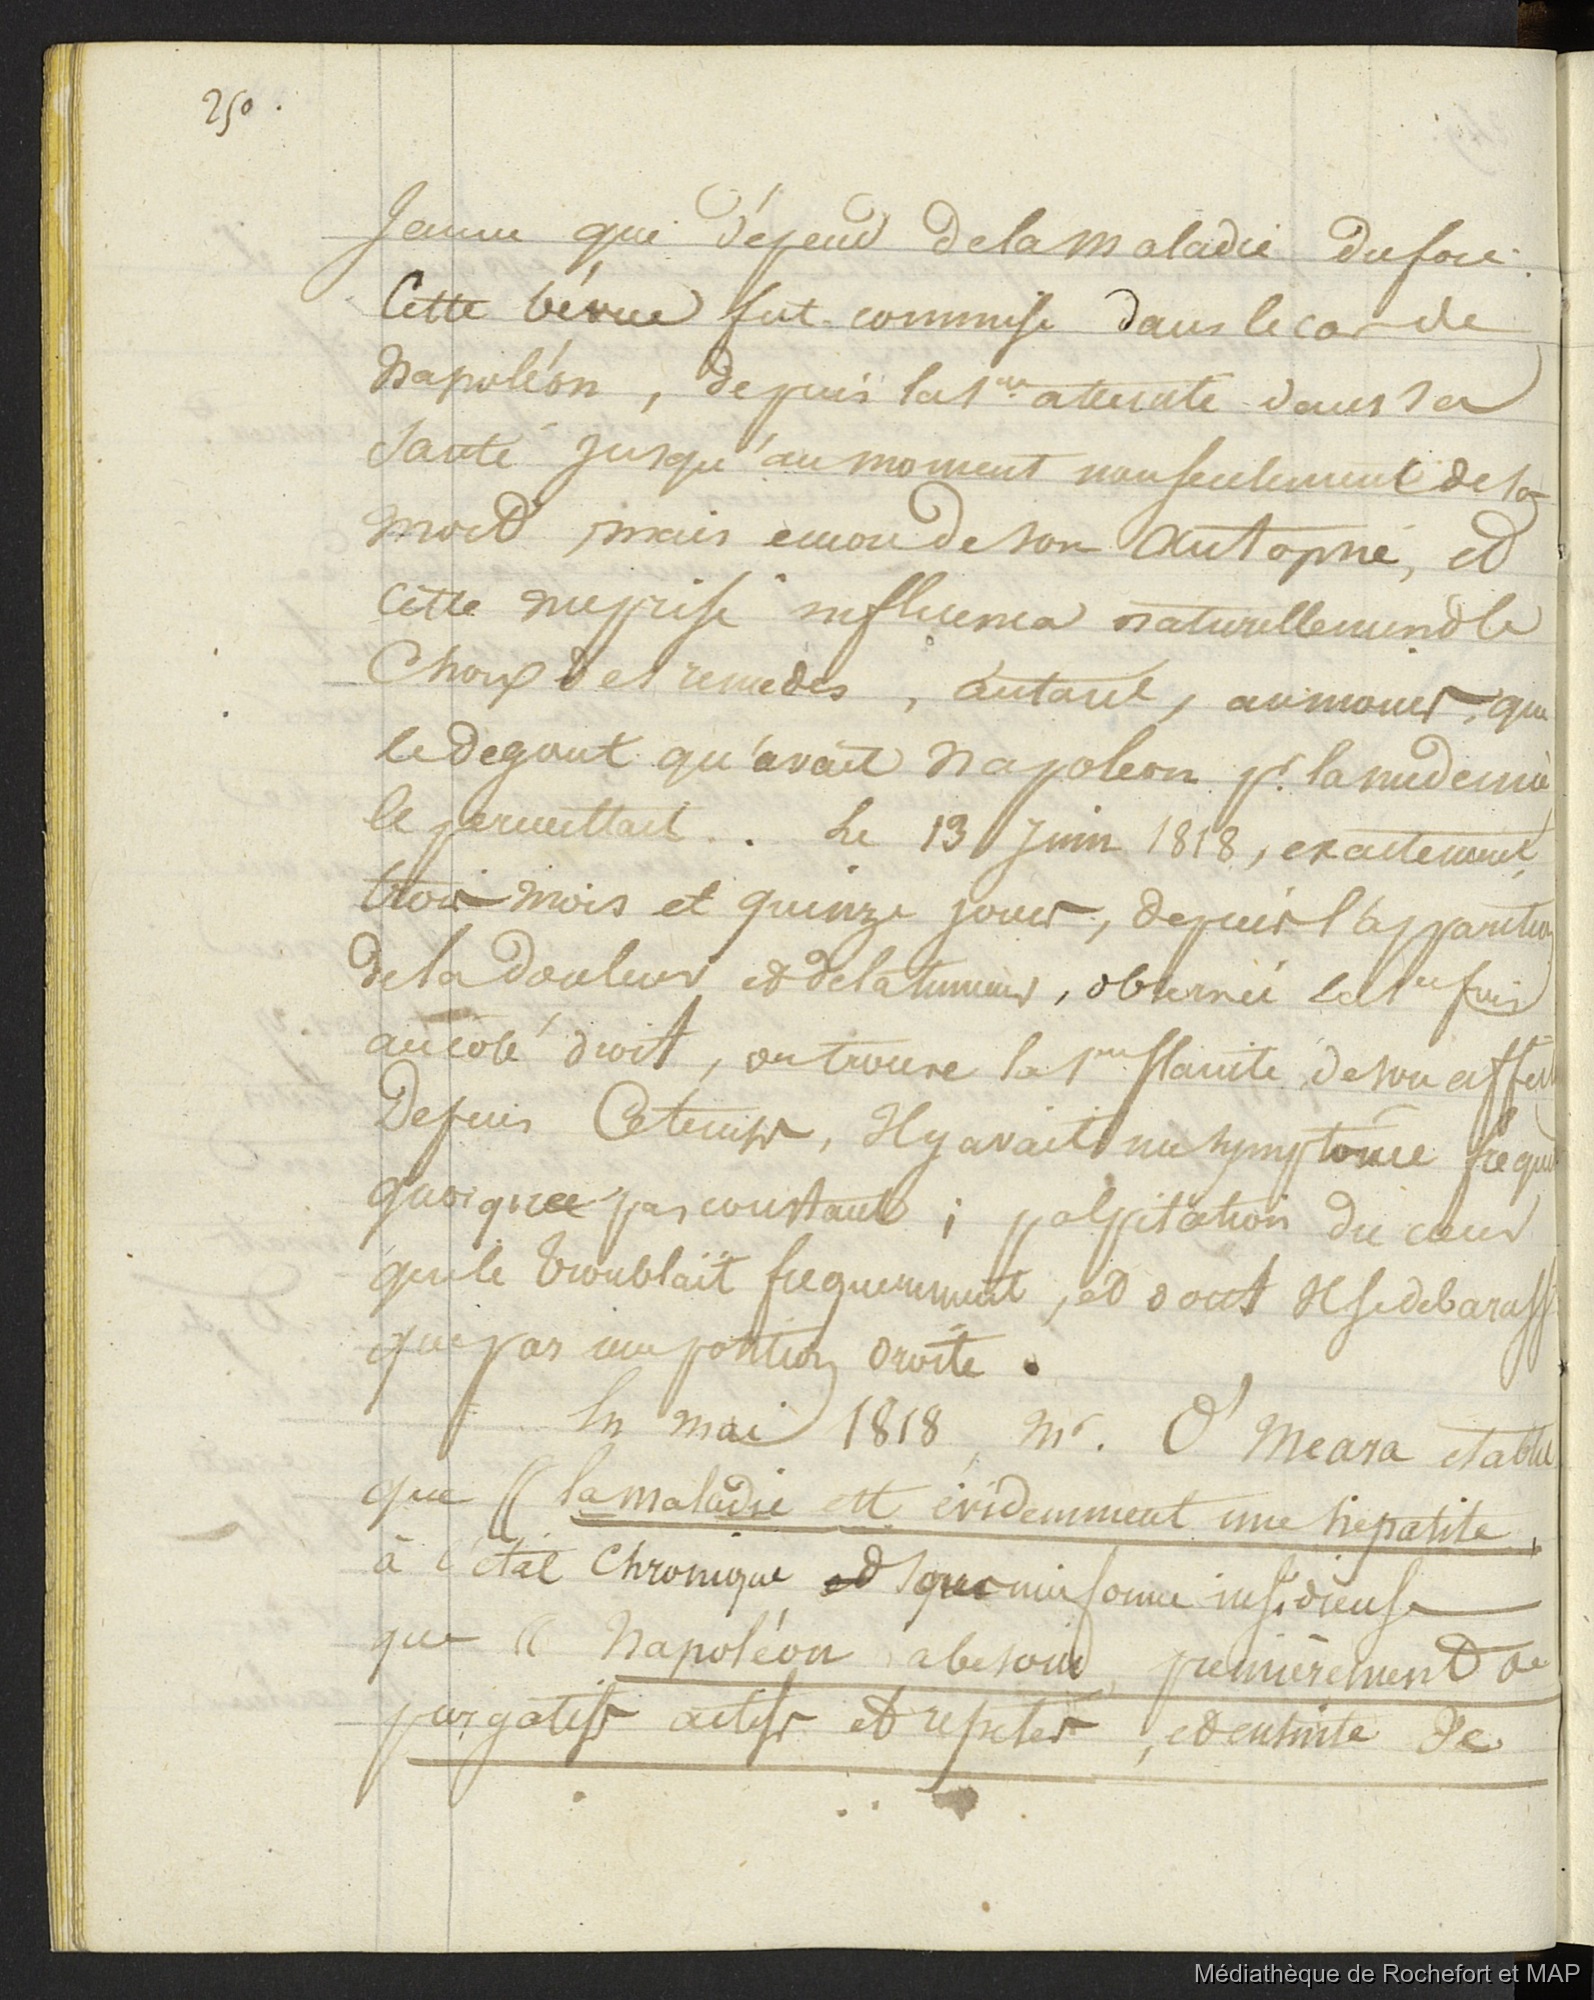 250.
Jaune qui dépend de la maladie du foie.
Cette bévue fut commise dans le cas de
Napoléon, depuis la 1re atteinte dans sa
santé jusqu'au moment non seulement de sa
mort, mais encore de son autopsie, et
cette méprise influença naturellement le
choix des remèdes, autant, au moins, que
le degout qu'avait Napoleon pr. la medecine
le permettait.. Le 13 Juin 1818, exactement
trois mois et quinze jours, depuis l'apparition
de la douleur et de la tumeur, observée la 1re fois
au coté droit, on trouve la 1re de son
Depuis ce temps, il y avait un symptôme frequent
quoique pas constant; palpitation du cœur
qui le troublait frequemment, et dont il se debarass
que par une position droite.
En mai 1818, Mr. O'Meara etablit
que (( la maladie est évidemment une hépatite,
à l'état chronique et sous une forme insidieuse
que (( Napoléon a besoin premièrement de
purgatifs actifs et repetés, et ensuite de
Médiathèque de Rochefort et MAP